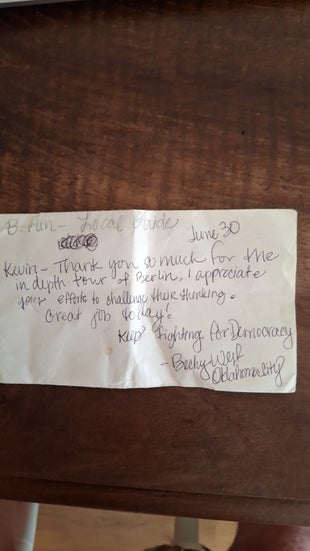 Berlin - Local Guide
June 30
Kevin - Thank you so much for the
in depth tour of Berlin. I appreciate
your efforts to challenge their thinking.
Great job today!
Keep Fighting for Democracy
- Becky West
Oklahoma City